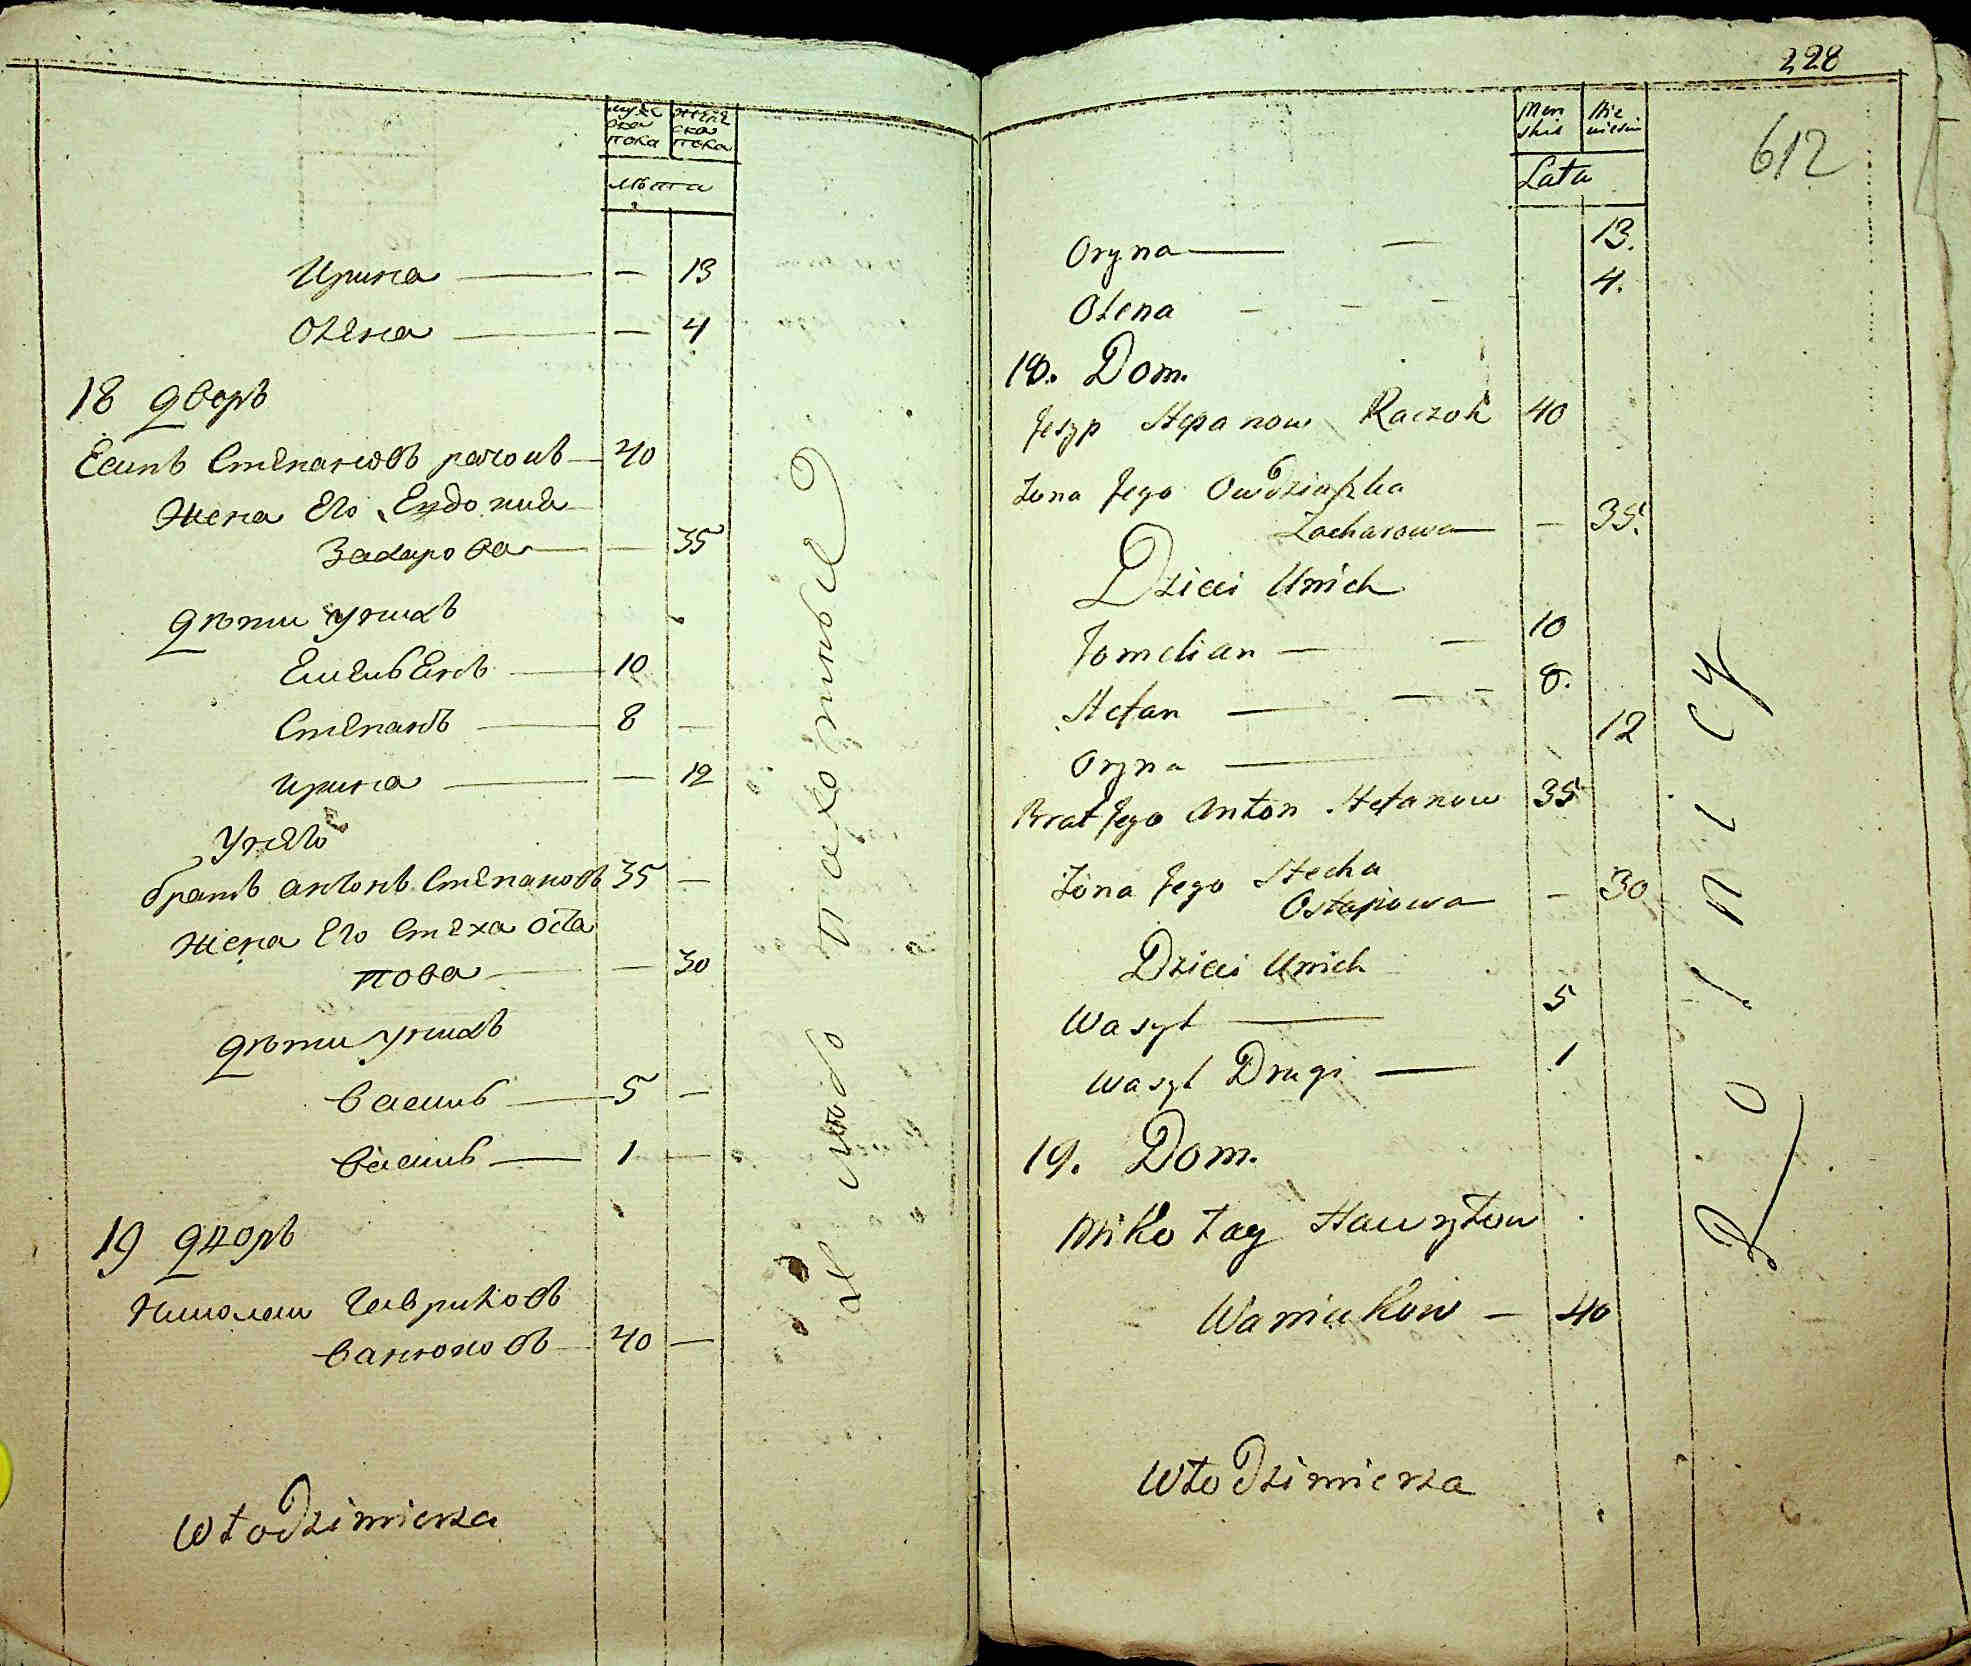 мужс женс
ка ска
пола пола
лѣта
Ирина — — 13
Олена — — 4
18 дворъ
Есипъ Степановъ рачокъ — 40
Жена Его Евдокия
Захарова — — 35
дѣти унихъ
Емельянъ — 10
Степанъ — 8 —
ирина — — 12
Унего
братъ антонъ Степановъ 35 —
Жена Его Стеха Оста
пова — — 30
дѣти унихъ
Василь — 5 —
Василь — 1 —
19 дворъ
Николай Гавриловъ
Ванюковъ — 40 —
Włodzimierza
228
612
Men
skie
Nie
wieście
Lata
Oryna — — 13.
Olena - - - 4.
18. Dom.
Jesyp Stepanow Raczok 40
Żona Jego Owdziuszka
Zacharowa — — 35.
Dzieci Unich
Jomelian — — 10
Stefan — — - 8.
Oryna — 12
Brat Jego Anton Stefanow 35
Żona Jego Stecha
Ostapowa — — 30
Dzieci Unich
Wasyl — 5
Wasyl Drugi — 1
19. Dom.
Mikołay Hawryłow
Waniukow — 40
Rolnicy
Włodzimierza